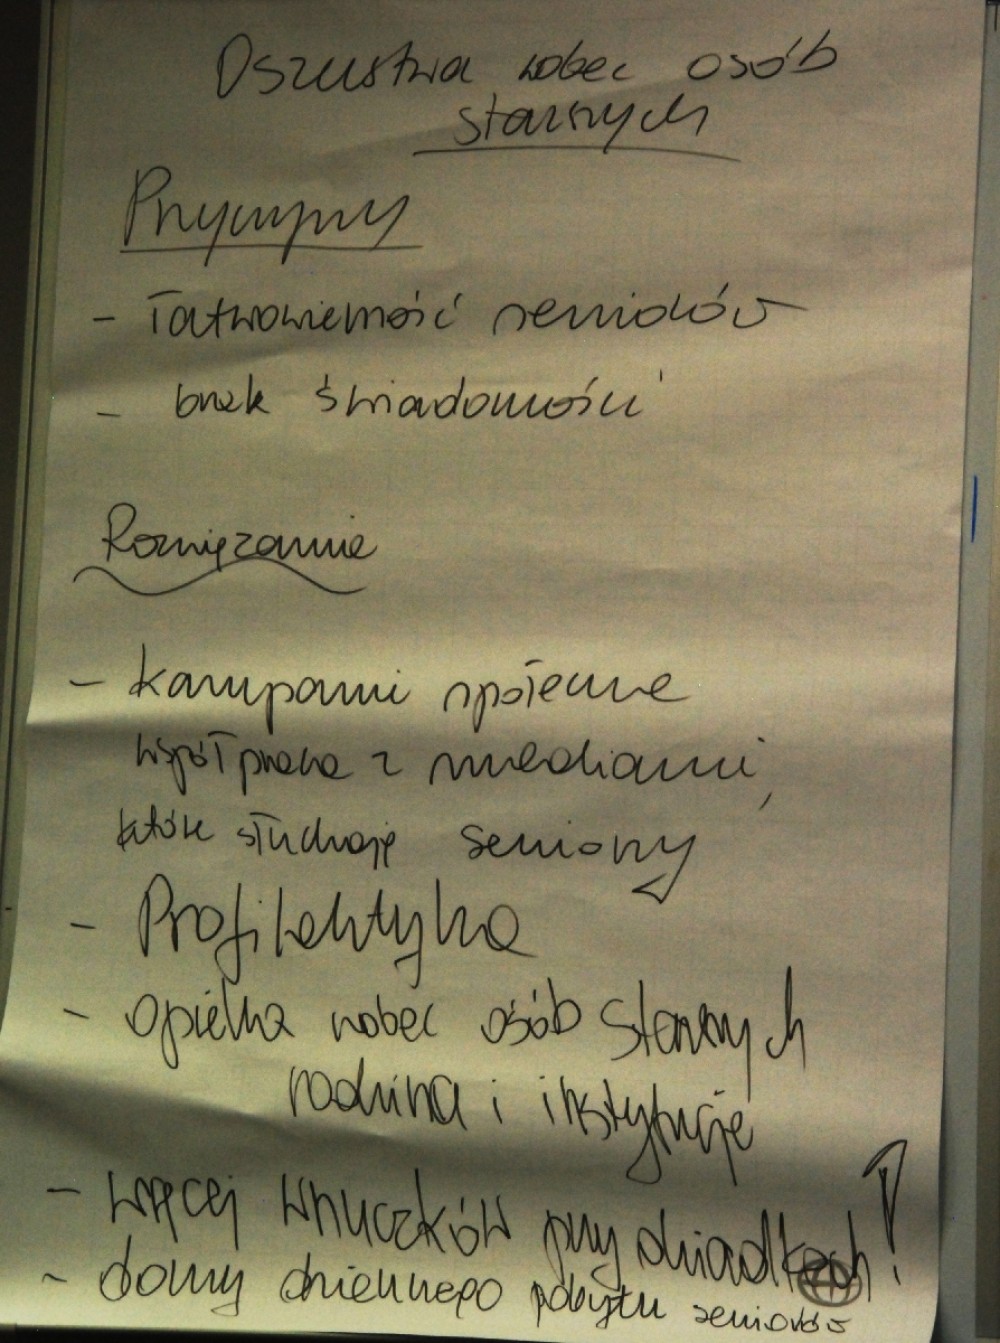 Oszustwa wobec osób
starszych
Przyczyny
- łatwowierność seniorów
- brak świadomości
Rozwiązanie
- kampanie społeczne
współpraca z mediami,
które słuchają seniorzy
- Profilaktyka
- opieka wobec osób starszych
rodzina i instytucje
- więcej wnuczków przy dziadkach!
- domy dziennego pobytu seniorów